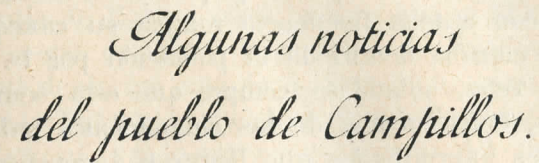 Algunas noticias
del pueblo de Campillos.